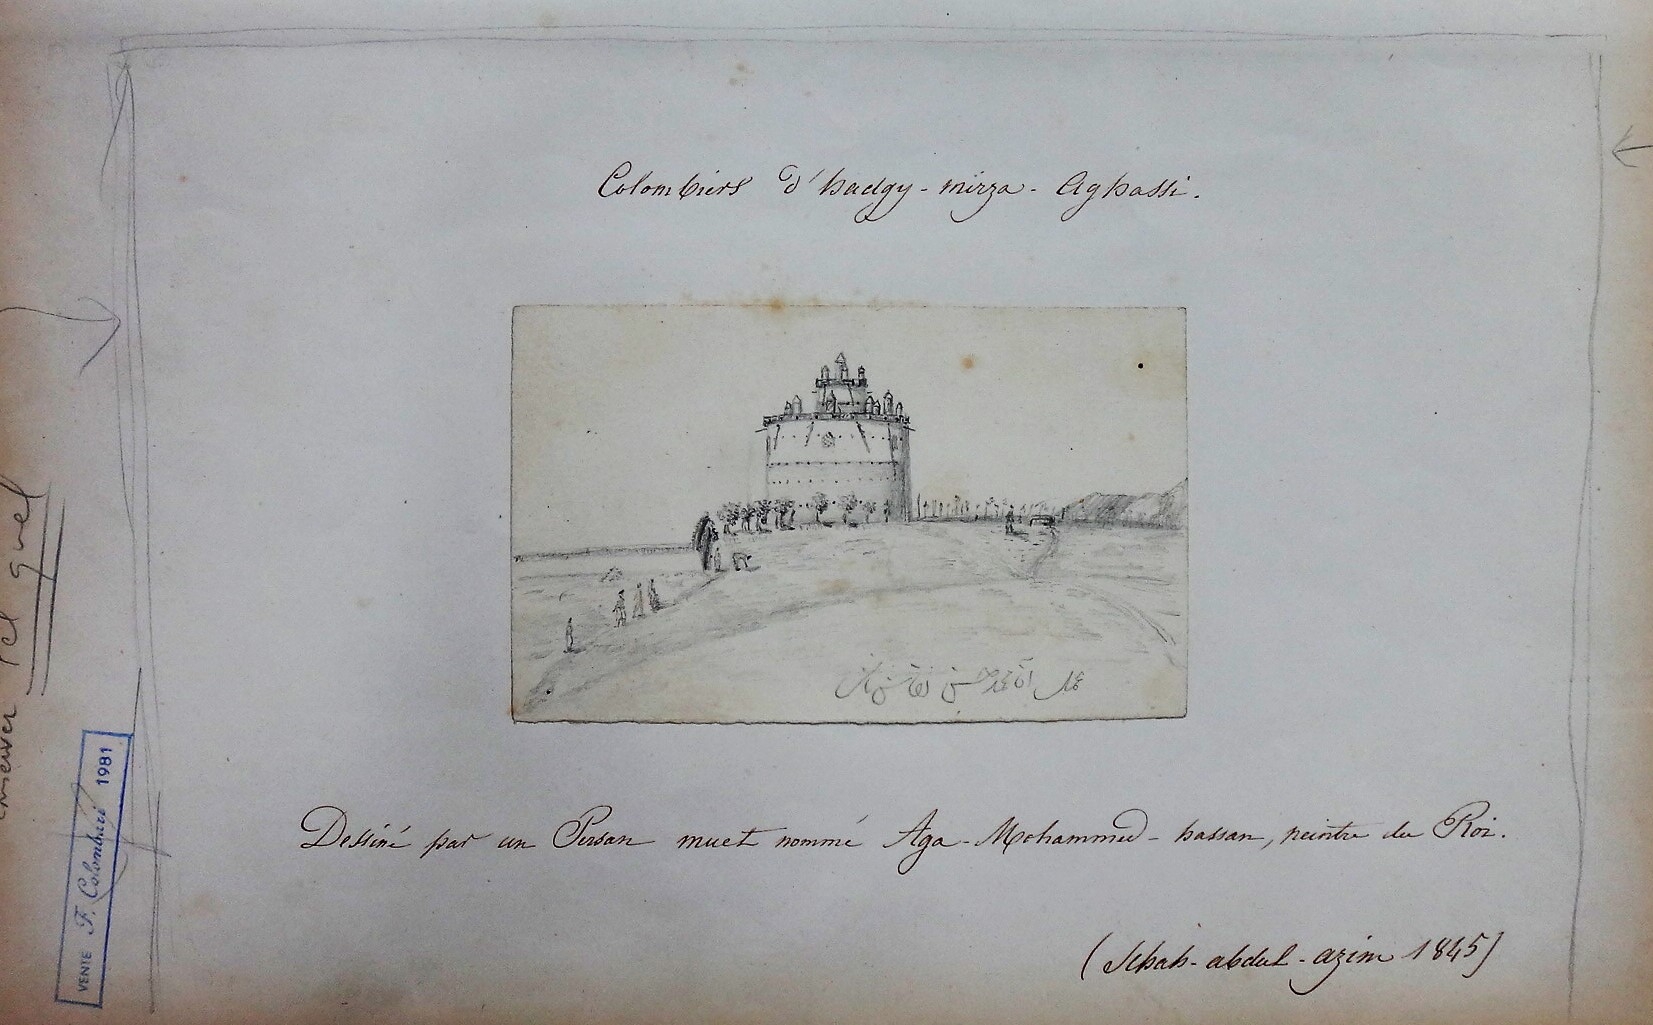 Colombiers d'hadgy-mirza-Aghassi.
عمل آقا محمد حسن نقاش
Dessiné par un Persan muet nommé Aga-Mohammed-hassan, peintre du Roi.
(Schah-abdul-azim 1845)
tel quel
VENTE F. Colombari 1981